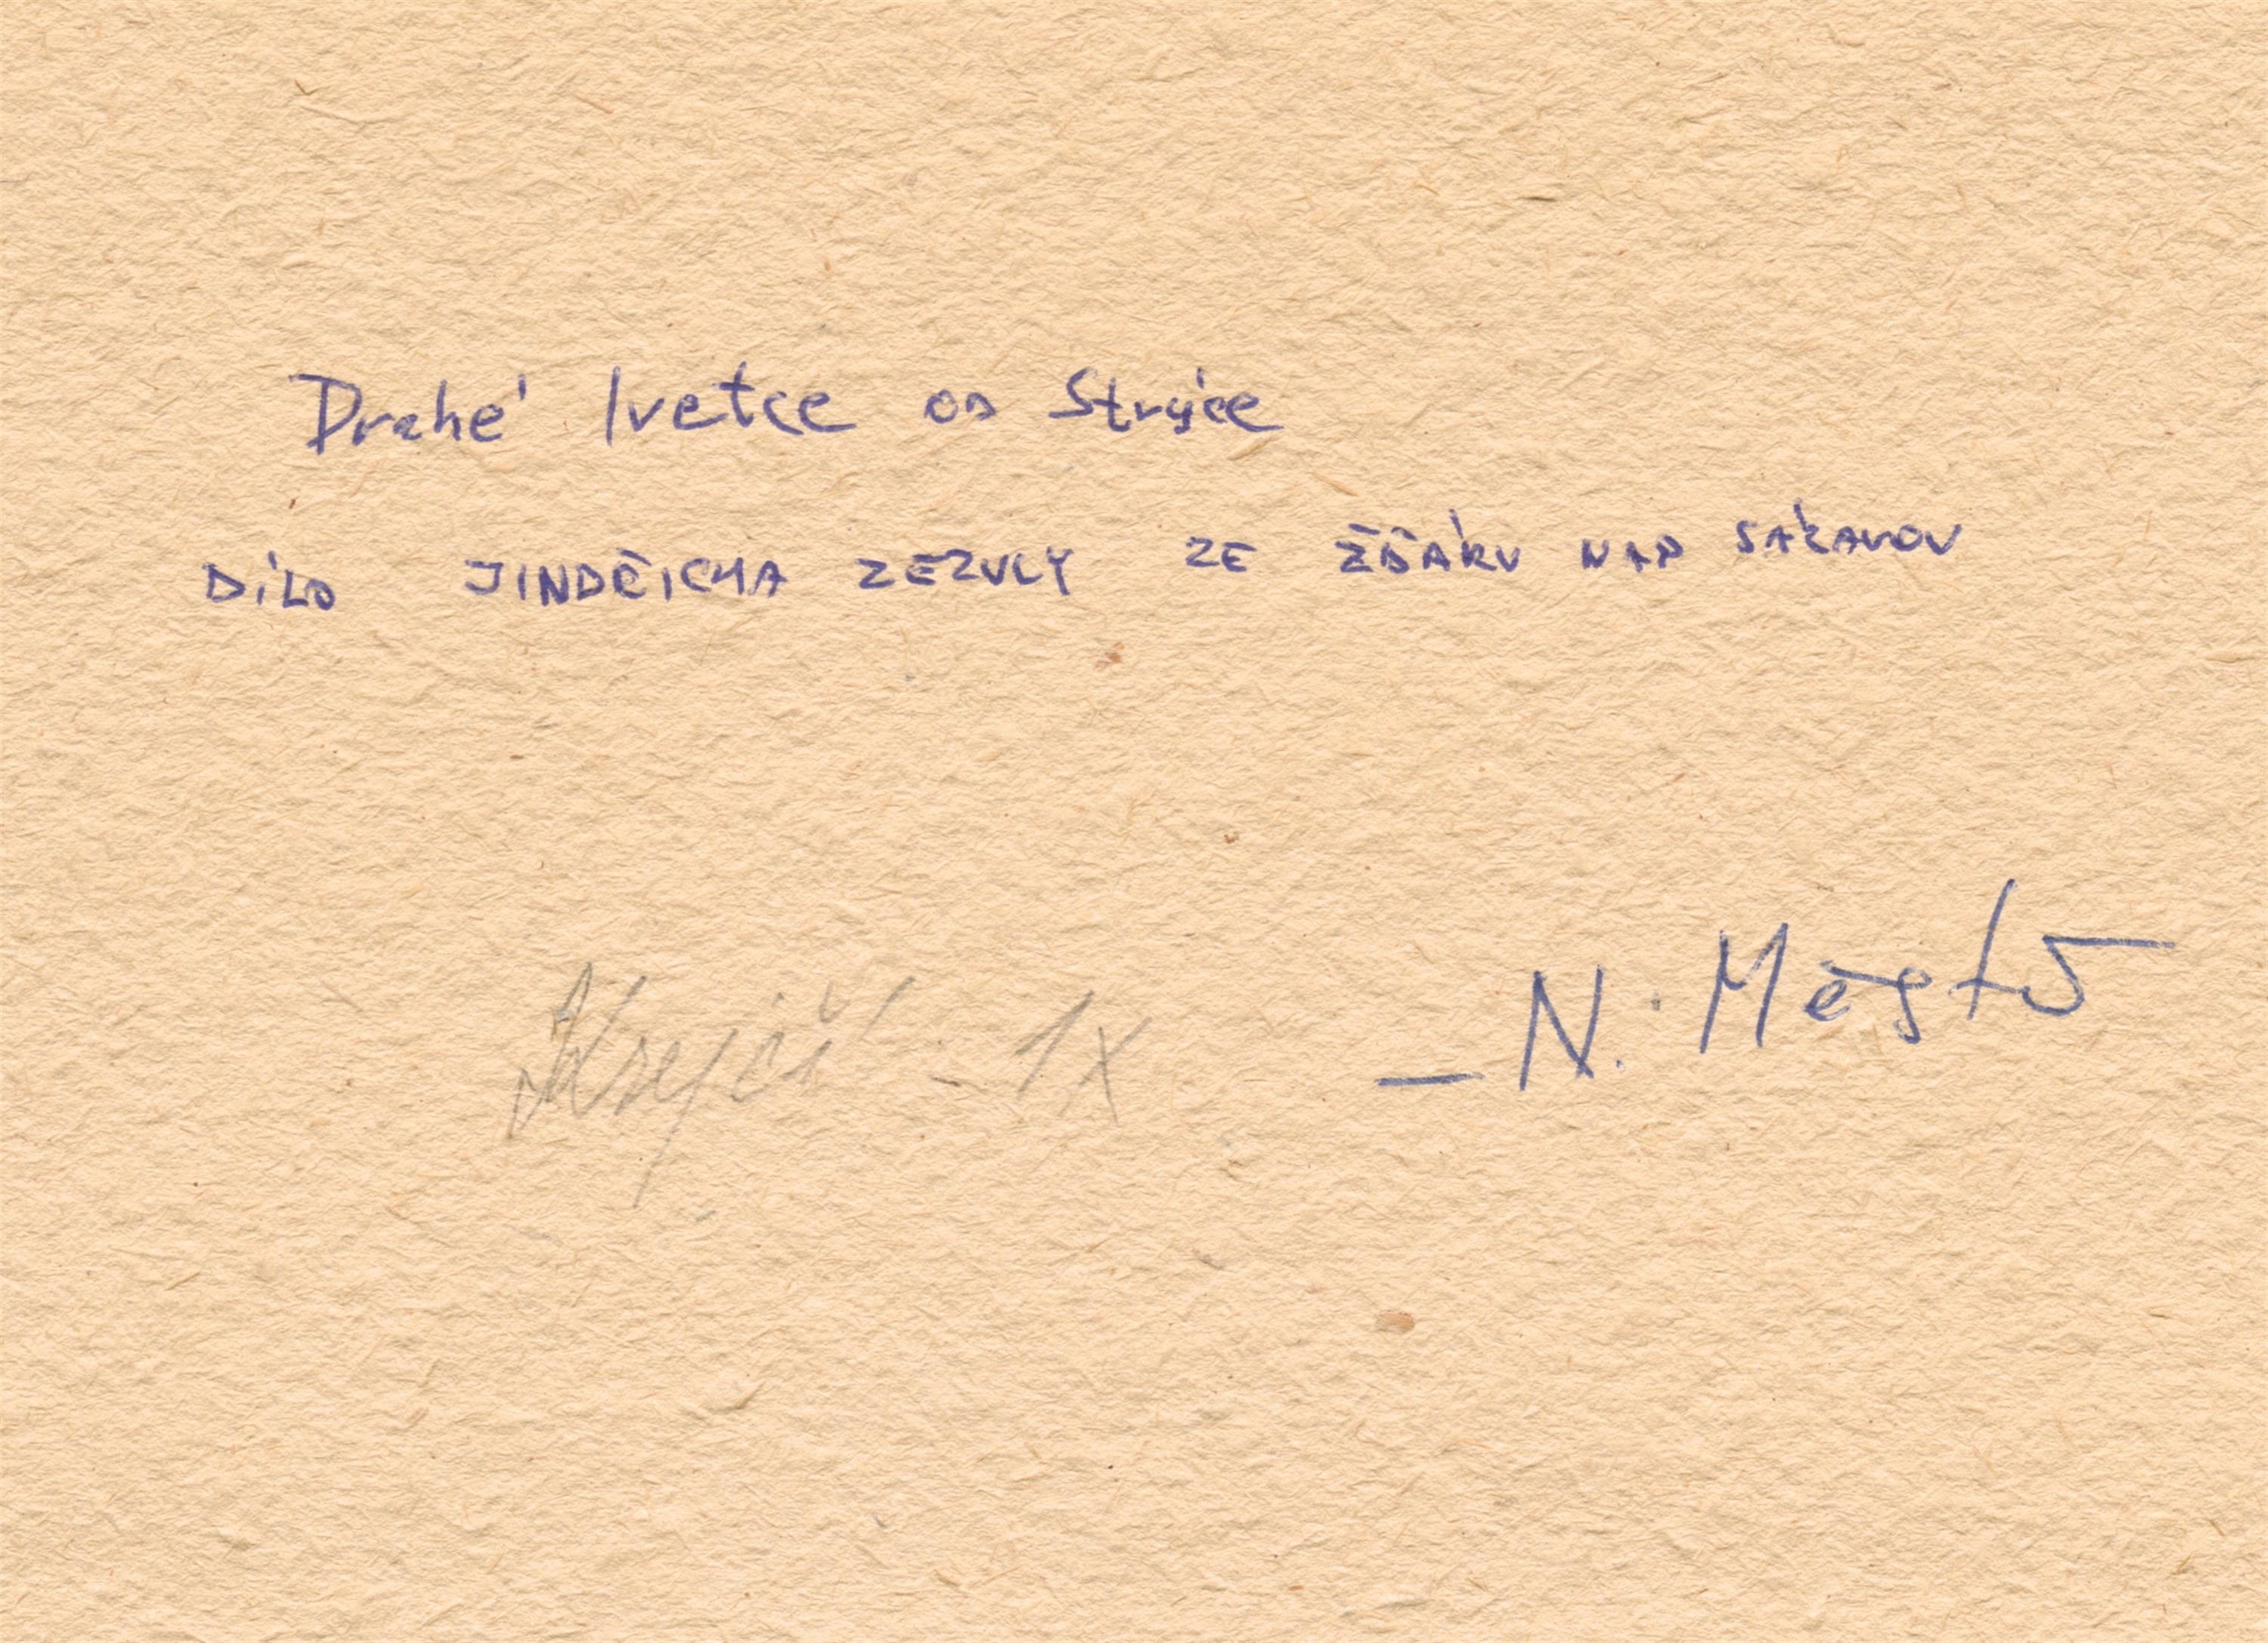 Drahé Ivetce od Strýce
DÍLO JINDŘICHA ZEZULY ZE ŽĎÁRU NAD SÁZAVOU
Krejčí - 1x
– N. Město